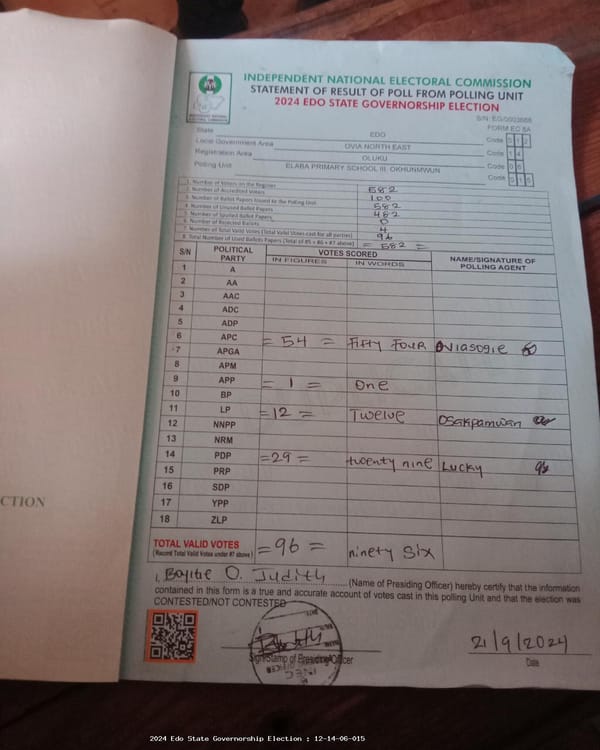 INDEPENDENT NATIONAL ELECTORAL COMMISSION
STATEMENT OF RESULT OF POLL FROM POLLING UNIT
2024 EDO STATE GOVERNORSHIP ELECTION
FORM EC 8A
State EDO Code 1 2
Local Government Area OVIA NORTH EAST Code 1 4
Registration Area OLUKU Code 0 6
Polling Unit ELABA PRIMARY SCHOOL III, OKHUNMWUN Code 0 1 5
1. Number of Voters on the Register 582
2. Number of Accredited Voters 100
3. Number of Ballot Papers Issued to the Polling Unit 582
4. Number of Unused Ballot Papers 482
5. Number of Spoiled Ballot Papers 0
6. Number of Rejected Ballots 4
7. Number of Total Valid Votes (Total Valid Votes cast for all parties) 96
8. Total Number of Used Ballots Papers (Total of #5 + #6 + #7 above) = 582 =
S/N POLITICAL PARTY VOTES SCORED NAME/SIGNATURE OF POLLING AGENT
IN FIGURES IN WORDS
1 A
2 AA
3 AAC
4 ADC
5 ADP
6 APC = 54 = FIFTY FOUR OVIASOGIE
7 APGA
8 APM
9 APP = 1 = One
10 BP
11 LP = 12 = Twelve Osakpamwan
12 NNPP
13 NRM
14 PDP = 29 = twenty nine Lucky
15 PRP
16 SDP
17 YPP
18 ZLP
TOTAL VALID VOTES = 96 = ninety six
(Record Total Valid Votes under #7 above)
I, O. Judith (Name of Presiding Officer) hereby certify that the information
contained in this form is a true and accurate account of votes cast in this polling Unit and that the election was
CONTESTED/NOT CONTESTED
Sign/Stamp of Presiding Officer
21/9/2024
Date
CTION
2024 Edo State Governorship Election : 12-14-06-015